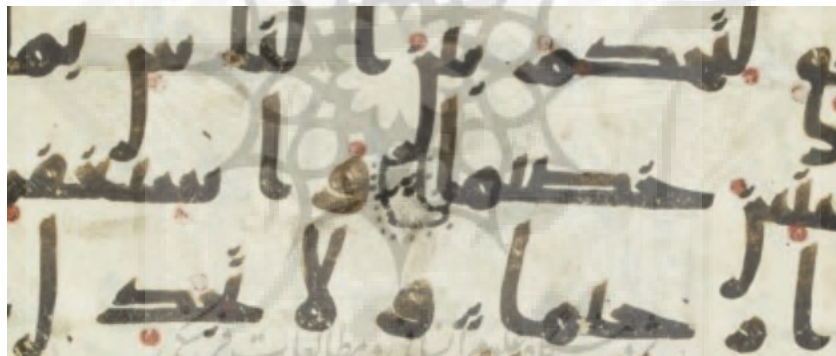 لتحكم بين الناس بما
ئنين خصيما واستغفر
را رحيما ولا تجدل